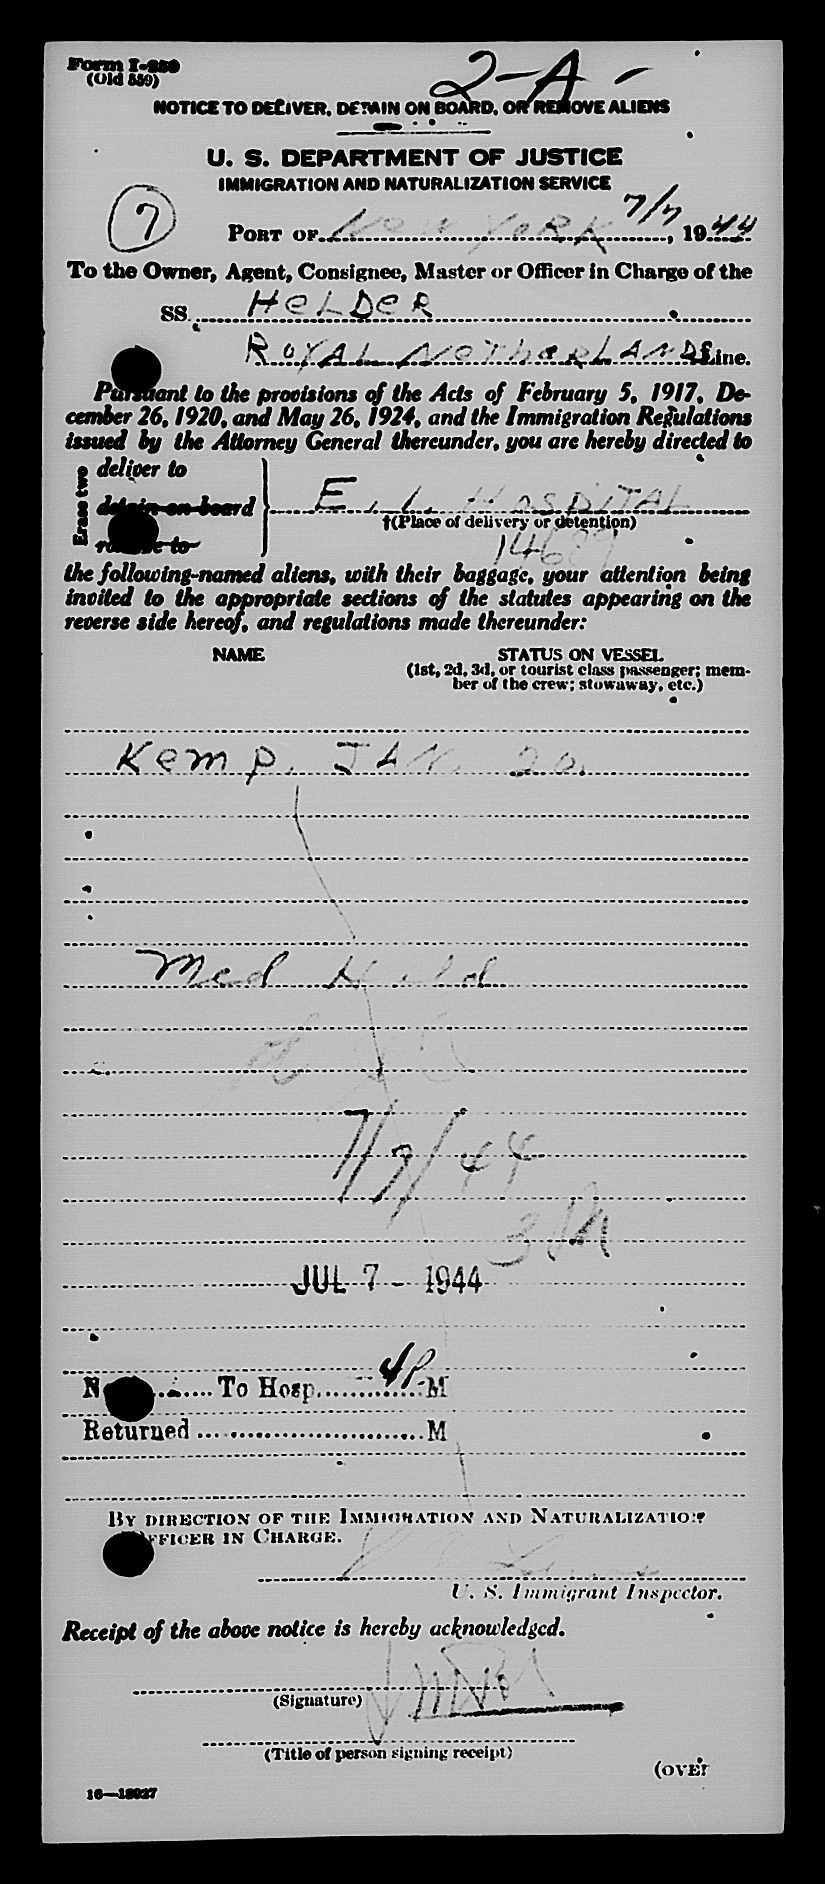 Form I-259
(Old 559)
2-A-
NOTICE TO DELIVER, DETAIN ON BOARD, OR REMOVE ALIENS
U. S. DEPARTMENT OF JUSTICE
IMMIGRATION AND NATURALIZATION SERVICE
7
PORT OF NEW YORK 7/7, 1944
To the Owner, Agent, Consignee, Master or Officer in Charge of the
SS. HELDER
ROYAL NETHERLANDS Line.
Pursuant to the provisions of the Acts of February 5, 1917, De-
cember 26, 1920, and May 26, 1924, and the Immigration Regulations
issued by the Attorney General thereunder, you are hereby directed to
Erase two
deliver to
detain on board
remove to
E. I. HOSPITAL
†(Place of delivery or detention)
14689
the following-named aliens, with their baggage, your attention being
invited to the appropriate sections of the statutes appearing on the
reverse side hereof, and regulations made thereunder:
NAME STATUS ON VESSEL
(1st, 2d, 3d, or tourist class passenger; mem-
ber of the crew; stowaway, etc.)
Kemp. JAN. 20.
Med Held
7/7/44
3 PM
JUL 7 - 1944
To Hosp. 4P M
Returned M
BY DIRECTION OF THE IMMIGRATION AND NATURALIZATION
OFFICER IN CHARGE.
U. S. Immigrant Inspector.
Receipt of the above notice is hereby acknowledged.
(Signature)
(Title of person signing receipt)
(OVER
16—18927